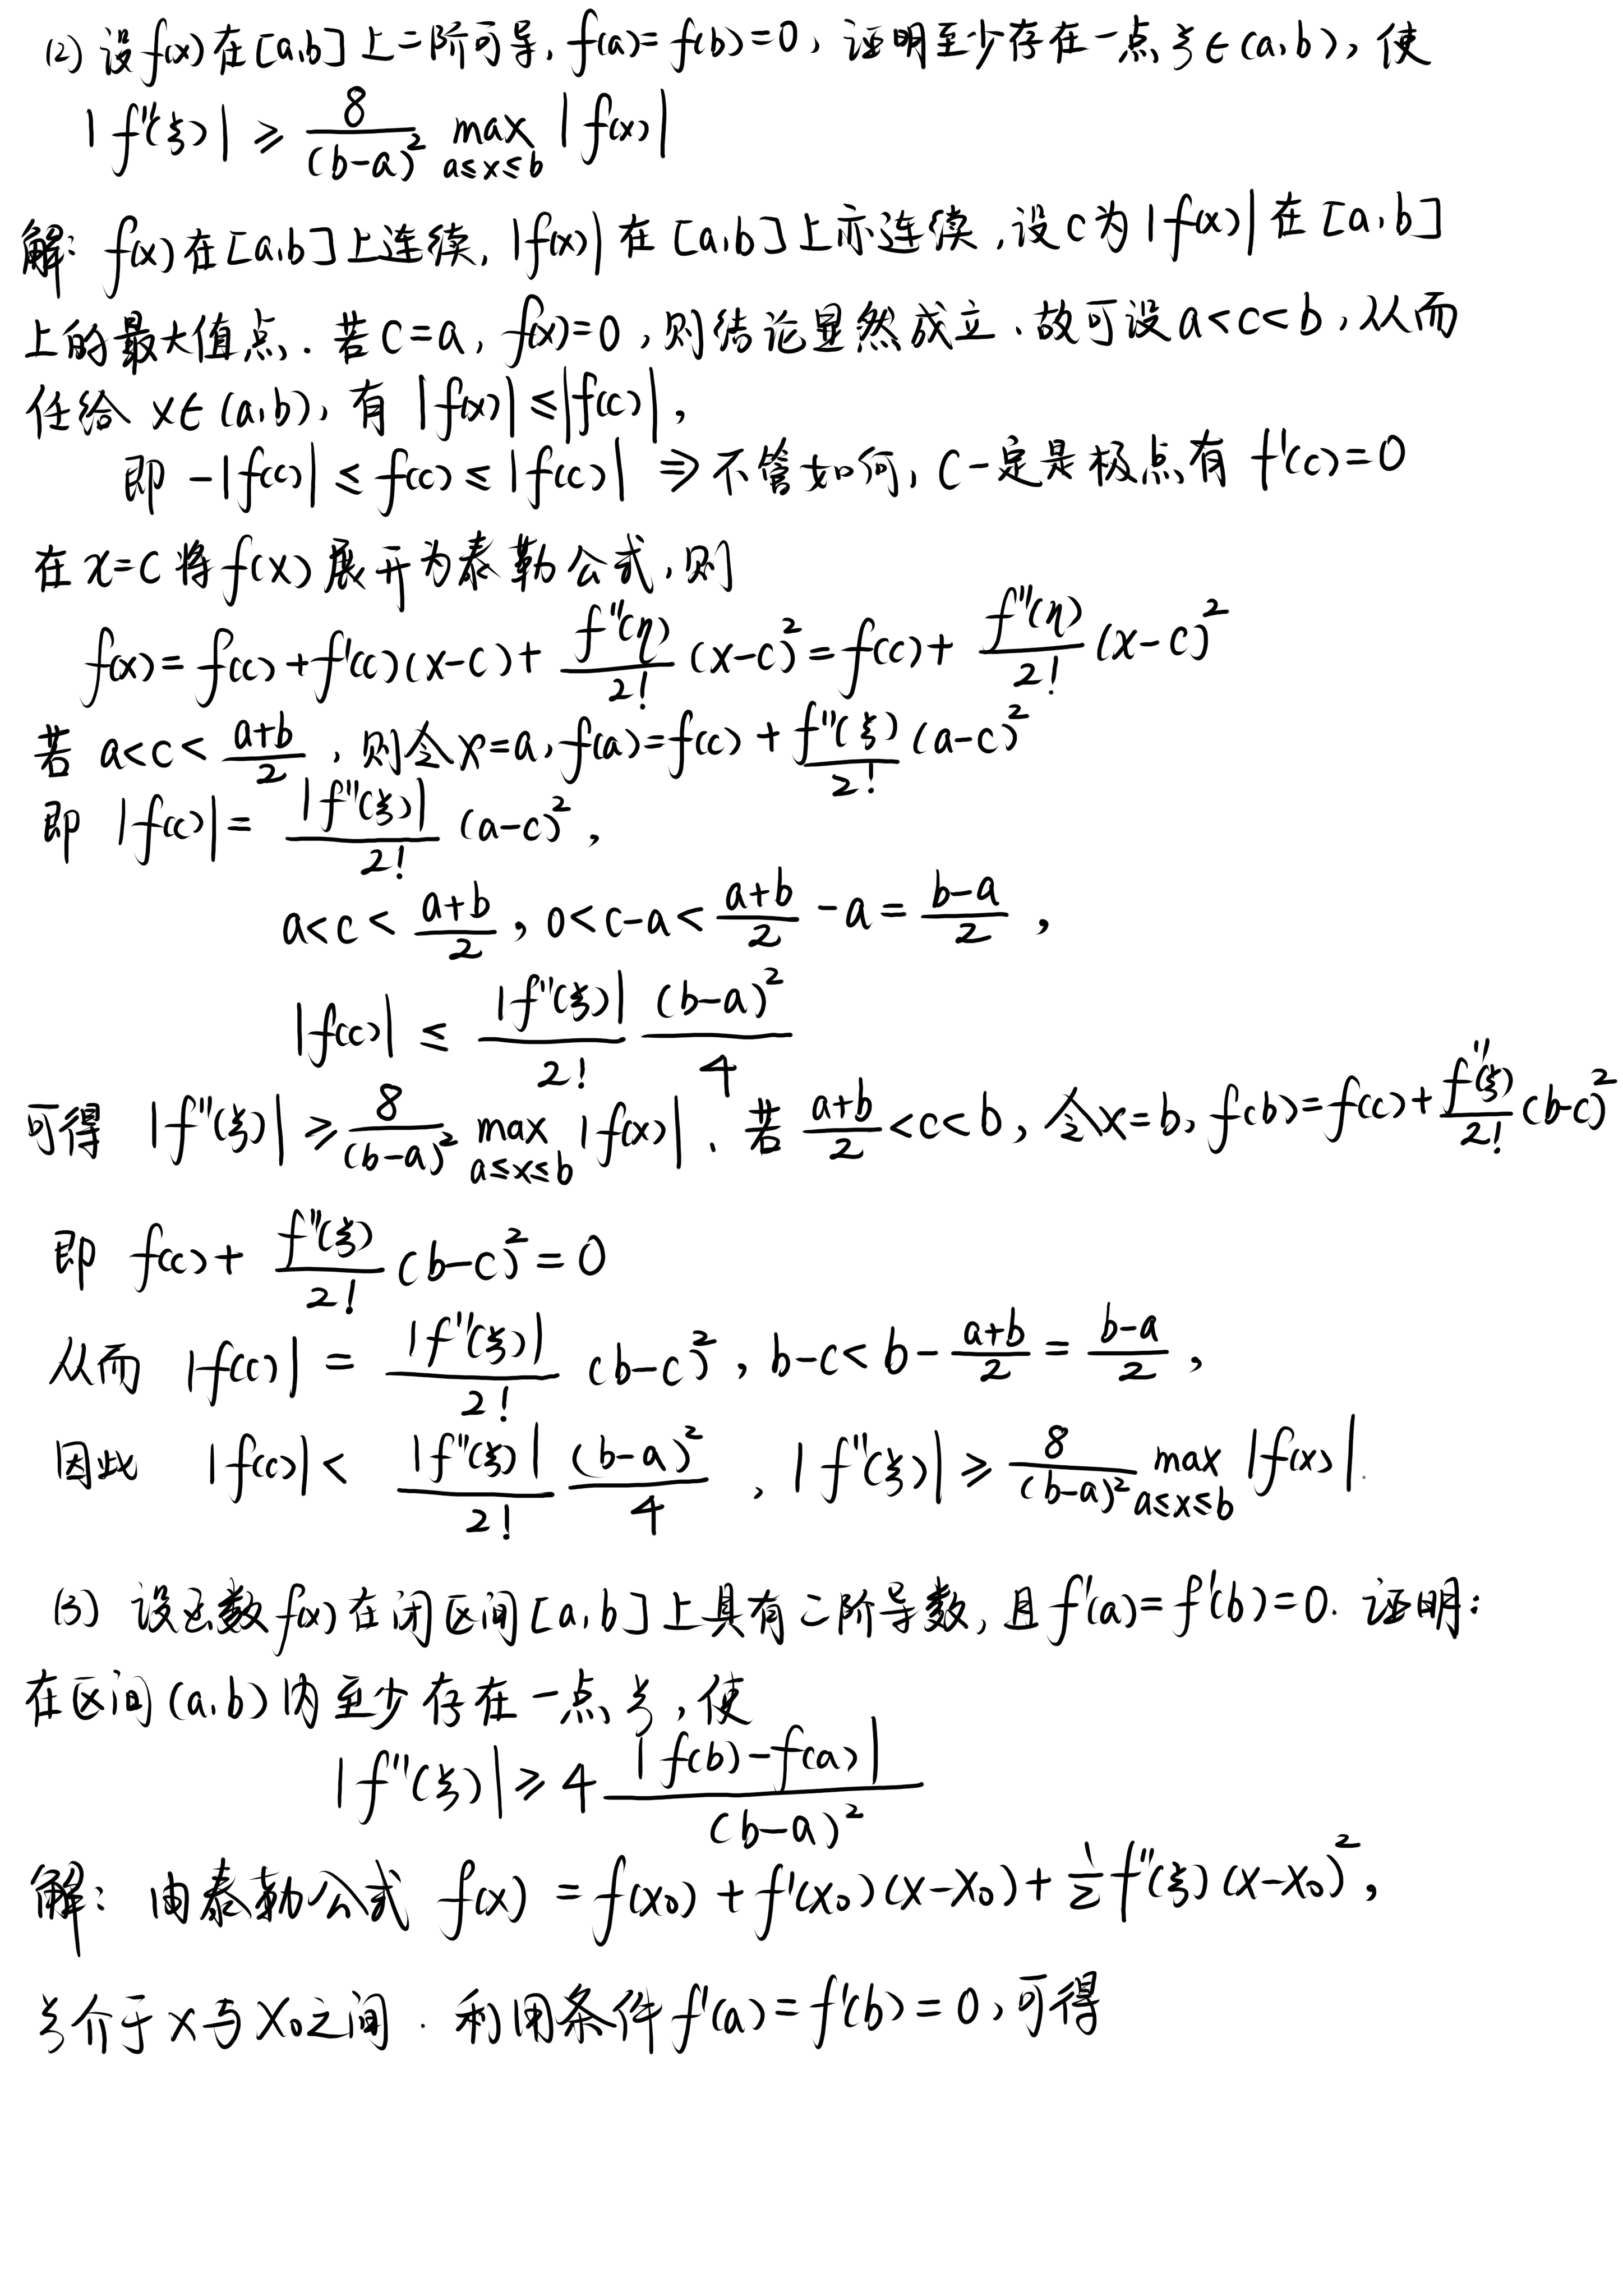 (2) 设f(x)在[a,b]上二阶可导, f(a)=f(b)=0, 证明至少存在一点ξ∈(a,b), 使
|f''(ξ)| ≥ \frac{8}{(b-a)^2} \max_{a≤x≤b} |f(x)|
解: f(x)在[a,b]上连续, |f(x)|在[a,b]上亦连续,设c为|f(x)|在[a,b]
上的最大值点. 若c=a, f(x)=0,则结论显然成立、故可设a<c<b,从而
任给 x∈(a,b), 有 |f(x)|≤|f(c)|,
即 -|f(c)| ≤ f(c) ≤ |f(c)| ⇒ 不管如何, c一定是极点有 f'(c)=0
在x=c将f(x)展开为泰勒公式,则
f(x)=f(c)+f'(c)(x-c)+\frac{f''(η)}{2!}(x-c)^2=f(c)+\frac{f''(η)}{2!}(x-c)^2
若 a<c<\frac{a+b}{2}, 则令x=a, f(a)=f(c)+\frac{f''(ξ)}{2!}(a-c)^2
即 |f(c)|=\frac{|f''(ξ)|}{2!}(a-c)^2,
a<c<\frac{a+b}{2}, 0<c-a<\frac{a+b}{2}-a=\frac{b-a}{2},
|f(c)| ≤ \frac{|f''(ξ)|}{2!}\frac{(b-a)^2}{4}
可得 |f''(ξ)| ≥ \frac{8}{(b-a)^2} \max_{a≤x≤b} |f(x)|、若 \frac{a+b}{2}<c<b, 令x=b, f(b)=f(c)+\frac{f''(ξ)}{2!}(b-c)^2
即 f(c)+\frac{f''(ξ)}{2!}(b-c)^2=0
从而 |f(c)|=\frac{|f''(ξ)|}{2!}(b-c)^2, b-c<b-\frac{a+b}{2}=\frac{b-a}{2},
因此 |f(c)|<\frac{|f''(ξ)|}{2!}\frac{(b-a)^2}{4}, |f''(ξ)| ≥ \frac{8}{(b-a)^2} \max_{a≤x≤b} |f(x)|.
(3) 设函数f(x)在闭区间[a,b]上具有二阶导数, 且f'(a)=f'(b)=0. 证明:
在区间(a,b)内至少存在一点ξ,使
|f''(ξ)| ≥ 4\frac{|f(b)-f(a)|}{(b-a)^2}
解: 由泰勒公式 f(x)=f(x_0)+f'(x_0)(x-x_0)+\frac{1}{2}f''(ξ)(x-x_0)^2,
ξ介于x与x_0之间. 利用条件f'(a)=f'(b)=0,可得